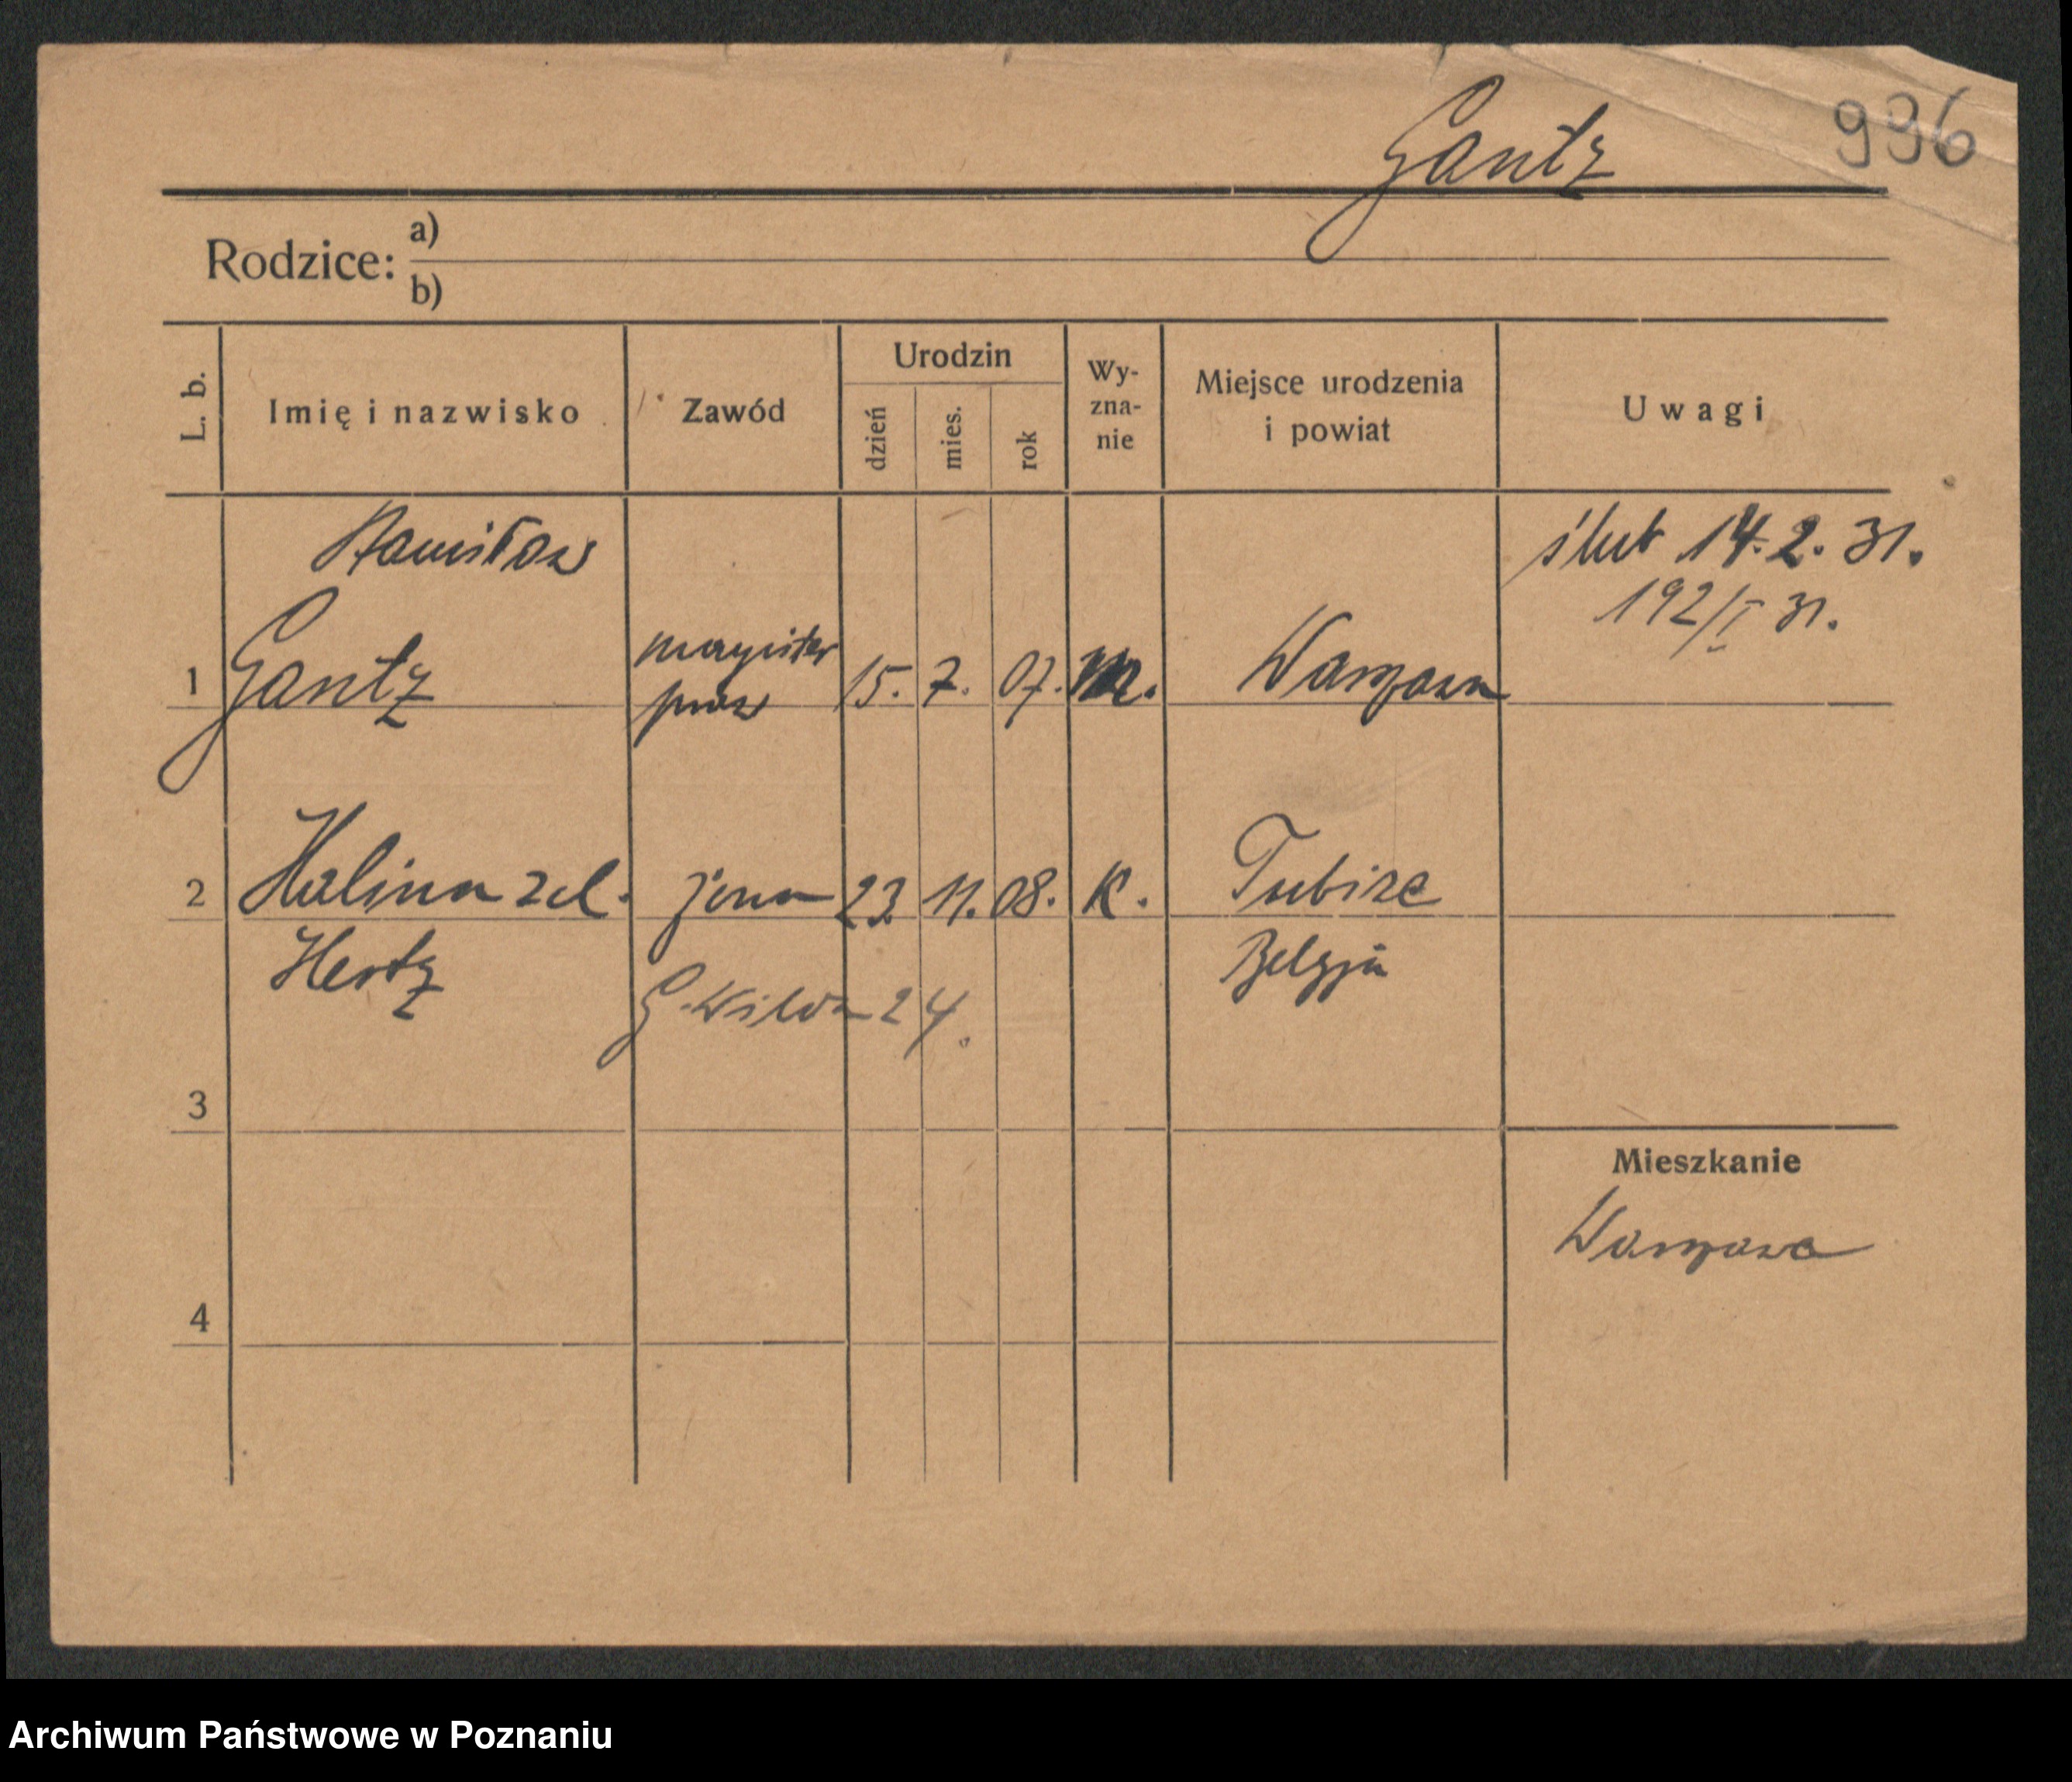 Gantz
996
Rodzice: a)
b)
L. b.
Imię i nazwisko
Zawód
Urodzin
dzień
mies.
rok
Wy-
zna-
nie
Miejsce urodzenia
i powiat
Uwagi
1
Stanisław
Gantz
magister
praw
15. 7. 07.
Warszawa
ślub 14. 2. 31.
192/I 31.
2
Halina zd.
Hertz
żona
23. 11. 08. K.
Tubize
Belgja
G. Wilda 24.
3
Mieszkanie
Warszawa
4
Archiwum Państwowe w Poznaniu